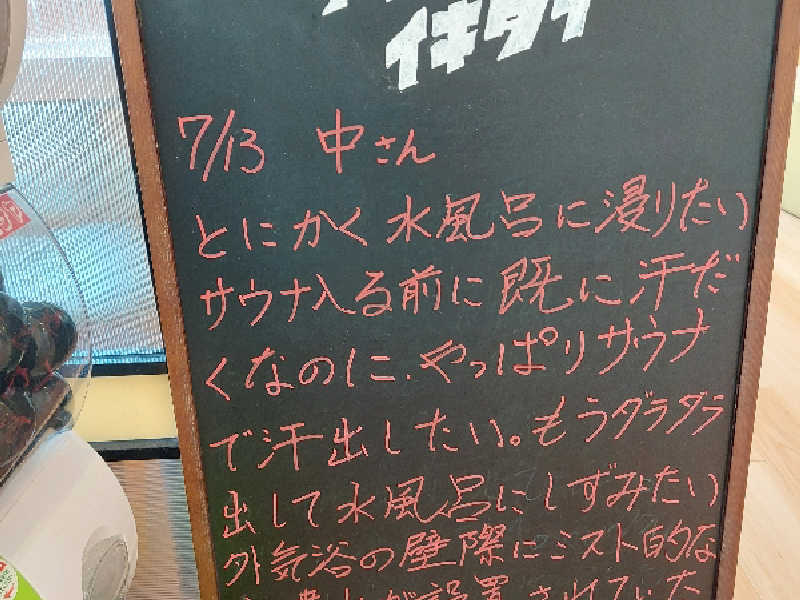 イキタイ
7/13 中さん
とにかく水風呂に浸りたい
サウナ入る前に既に汗だ
くなのに、やっぱりサウナ
で汗出したい。もうダラダラ
出して水風呂にしずみたい
外気浴の壁際にミスト的な
が設置されていた